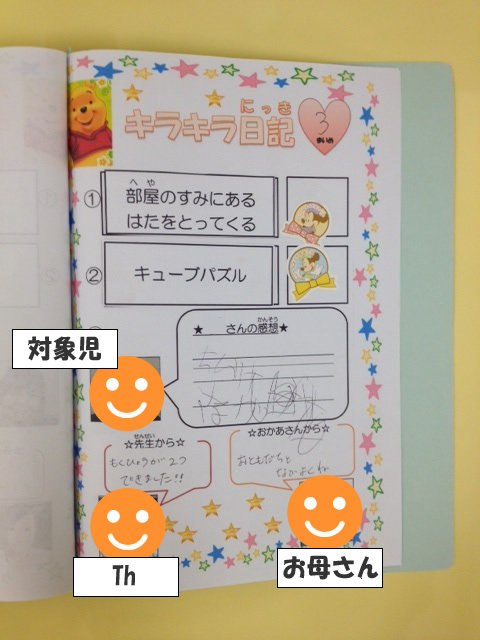 にっき
キラキラ日記
3
まいめ
①
へや
部屋のすみにある
はたをとってくる
②
キューブパズル
対象児
かんそう
★ さんの感想★
せんせい
☆先生から☆
もくひょうが2つ
できました!!
☆おかあさんから☆
おともだちと
なかよくね
Th
お母さん